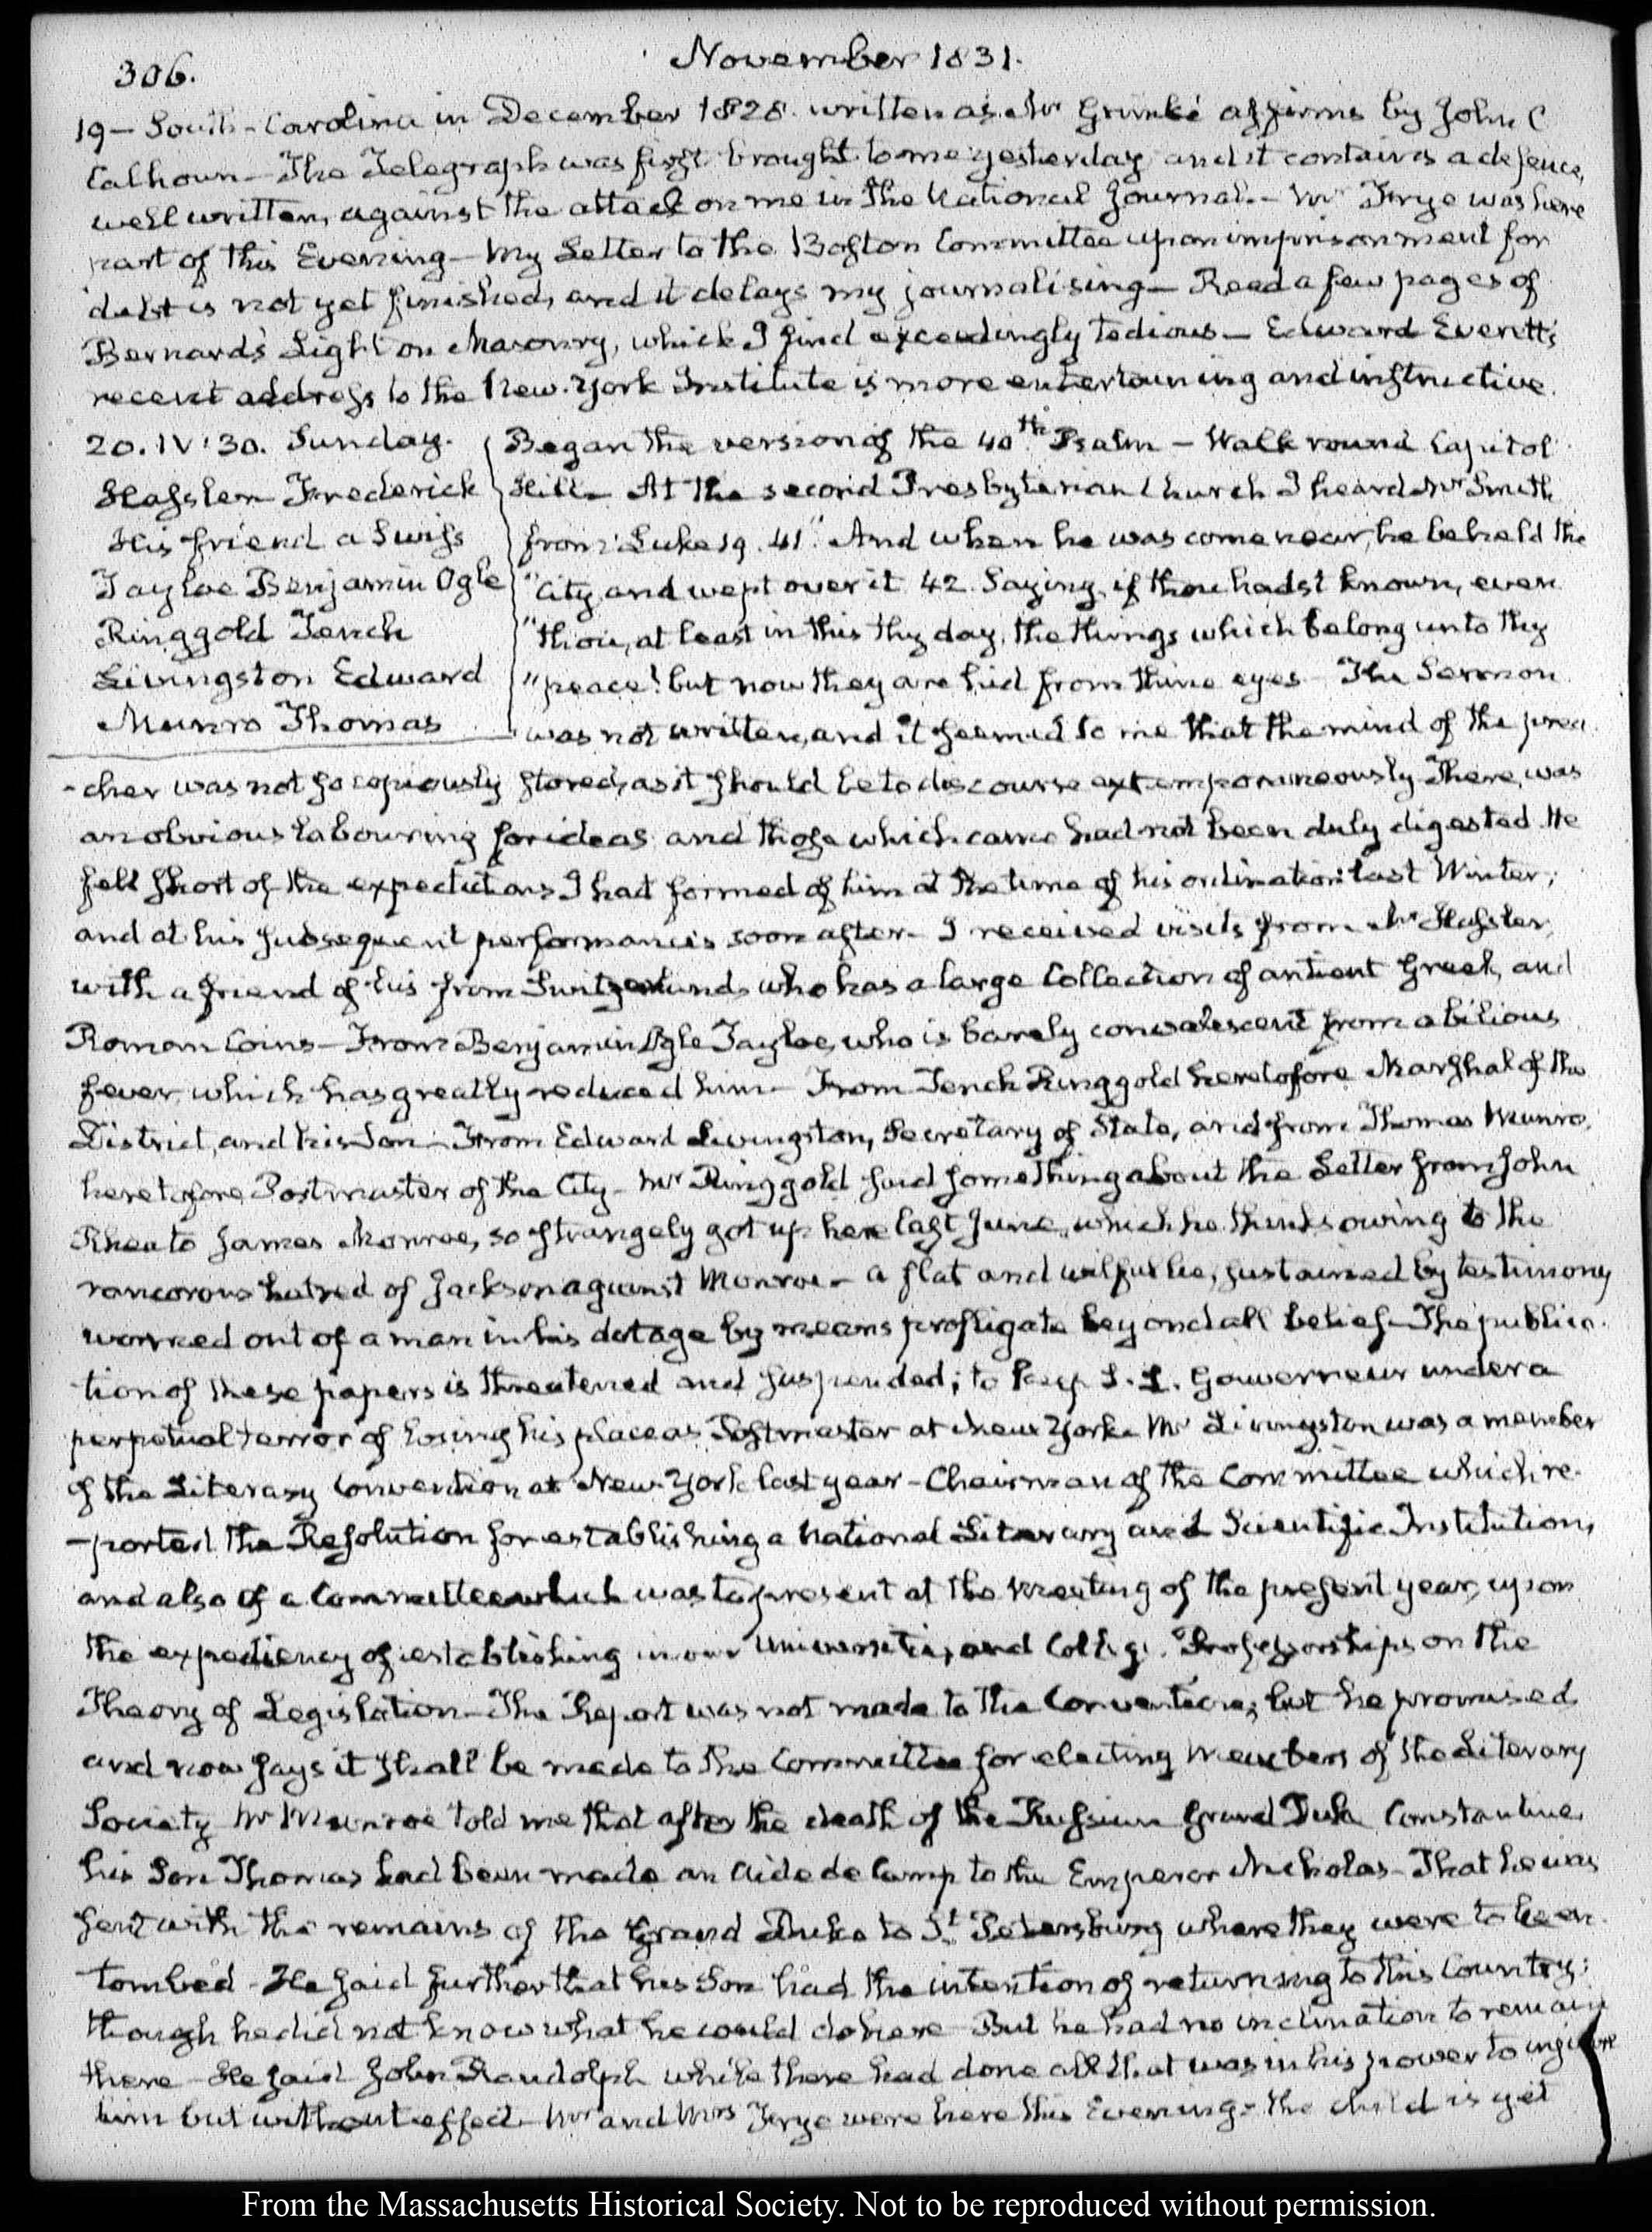 306.
November 1831.
19 — South-Carolina in December 1828. written as Mr Grimké affirms by John C
Calhoun — The Telegraph was first brought to me yesterday, and it contains a defence,
well written, against the attack on me in the National Journal. — Mr Frye was here
part of this Evening — My Letter to the Boston Committee upon imprisonment for
debt is not yet finished, and it delays my journalising — Read a few pages of
Bernard's Light on Masonry, which I find exceedingly tedious — Edward Everett's
recent address to the New-York Institute is more entertaining and instructive.
20. IV:30. Sunday.
Hassler Frederick
His friend a Swiss
Tayloe Benjamin Ogle
Ringgold Tench
Livingston Edward
Munro Thomas
Began the version of the 40th Psalm — Walk round Capitol
Hill — At the second Presbyterian Church I heard Mr Smith
from Luke 19. 41. "And when he was come near, he beheld the
"City, and wept over it 42. Saying, if thou hadst known, even
"thou, at least in this thy day, the things which belong unto thy
"peace! but now they are hid from thine eyes — The Sermon
was not written, and it seemed to me that the mind of the prea
-cher was not so copiously stored, as it should be to discourse extemporaneously There was
an obvious labouring for ideas and those which came had not been duly digested He
fell short of the expectations I had formed of him at the time of his ordination last Winter;
and at his subsequent performances soon after — I received visits from Mr Hassler,
with a friend of his from Switzerland, who has a large Collection of antient Greek, and
Roman Coins — From Benjamin Ogle Tayloe, who is barely convalescent from a bilious
fever, which has greatly reduced him — From Tench Ringgold heretofore Marshal of the
District, and his Son — From Edward Livingston, Secretary of State, and from Thomas Munro,
heretofore Postmaster of the City — Mr Ringgold said something about the Letter from John
Rhea to James Monroe, so strangely got up here last June, which he thinks owing to the
rancorous hatred of Jackson against Monroe — a flat and wilful lie, sustained by testimony
wormed out of a man in his dotage by means profligate beyond all belief — The publica
tion of these papers is threatened and suspended; to keep S. L. Gouverneur under a
perpetual terror of losing his place as Postmaster at New York. Mr Livingston was a member
of the Literary Convention at New-York last year — Chairman of the Committee which re-
-ported the Resolution for establishing a National Literary and Scientific Institution,
and also of a Committee which was to present at the Meeting of the present year, upon
the expediency of establishing in our Universities, and Colleges Professorships on the
Theory of Legislation — The Report was not made to the Convention; but he promised
and now says it shall be made to the Committee for electing Members of the Literary
Society Mr Munroe told me that after the death of the Russian Grand Duke Constantine,
his Son Thomas had been made an Aide de Camp to the Emperor Nicholas — That he was
sent with the remains of the Grand Duke to St. Petersburg where they were to be en
tombed — He said further that his Son had the intention of returning to this Country;
though he did not know what he could do here — But he had no inclination to remain
there — He said John Randolph while there had done all that was in his power to injure
him but without effect — Mr and Mrs Frye were here this Evening — the child is yet
From the Massachusetts Historical Society. Not to be reproduced without permission.